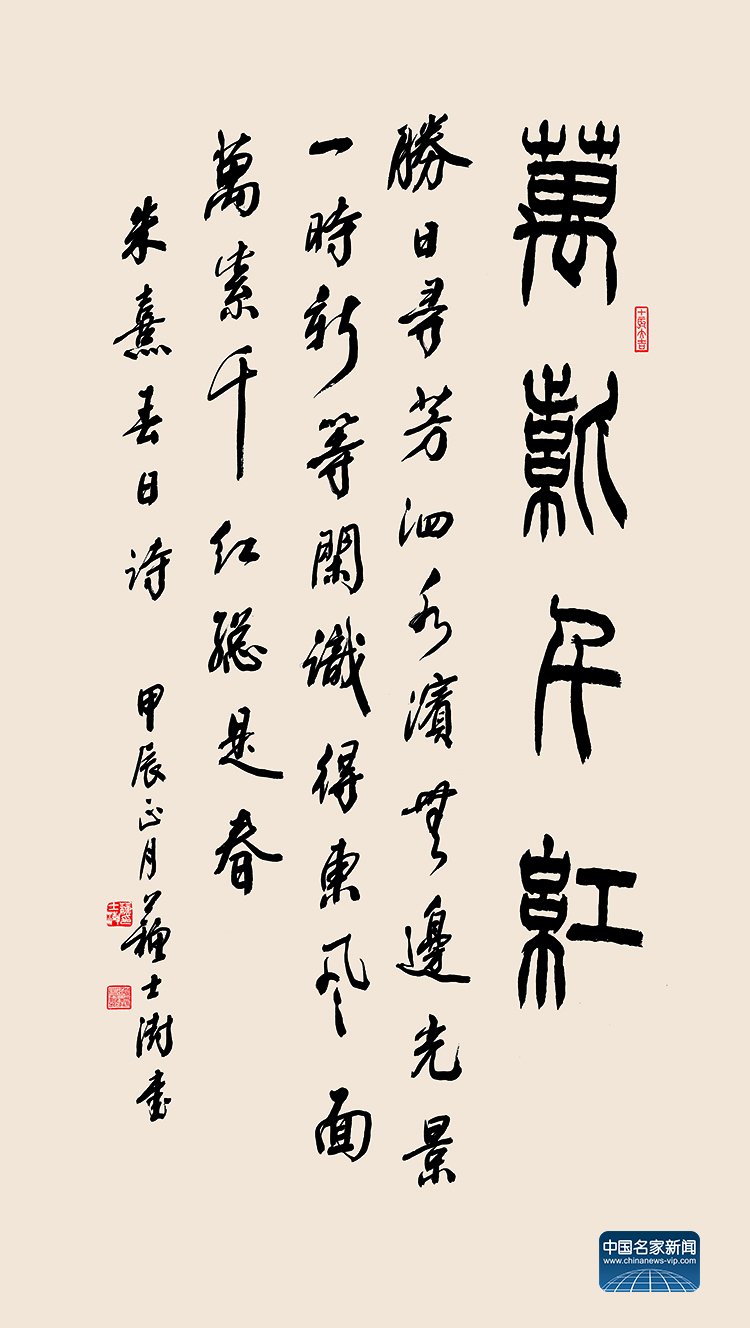 萬紫千紅
勝日尋芳泗水濱無邊光景
一時新等閑識得東風面
萬紫千紅總是春
朱熹春日詩 甲辰正月蘇士澍書
中国名家新闻
www.chinanews-vip.com